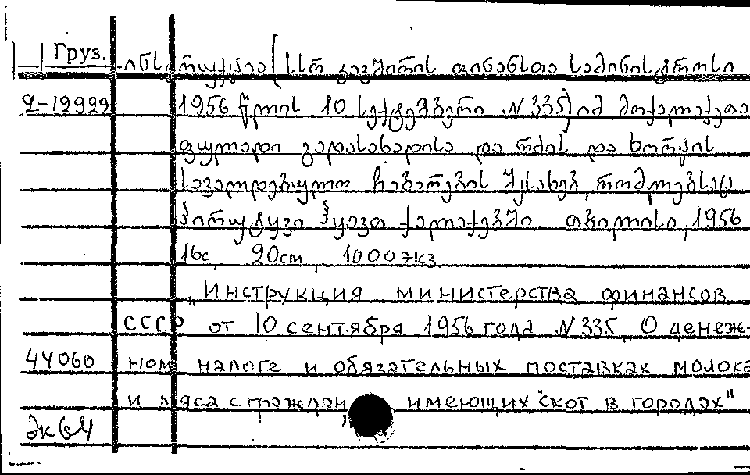 Груз. ინსტრუქცია (სსრ კავშირის ფინანსთა სამინისტროსი
2-12999 1956 წლის 10 სექტემბერი N 335) იმ მოქალაქეთა
ფულადი გადასახადისა და რძის და ხორცის
სავალდებულო ჩაბარების შესახებ, რომლებსაც
პირუტყვი ჰყავთ ქალაქებში თბილისი, 1956
16с. 20см 1000экз
„Инструкция министерства финансов
СССР от 10 сентября 1956 года N 335, О денеж-
44060 ном налоге и обязательных поставках молока
и мяса с граждан, имеющих "скот в городах"